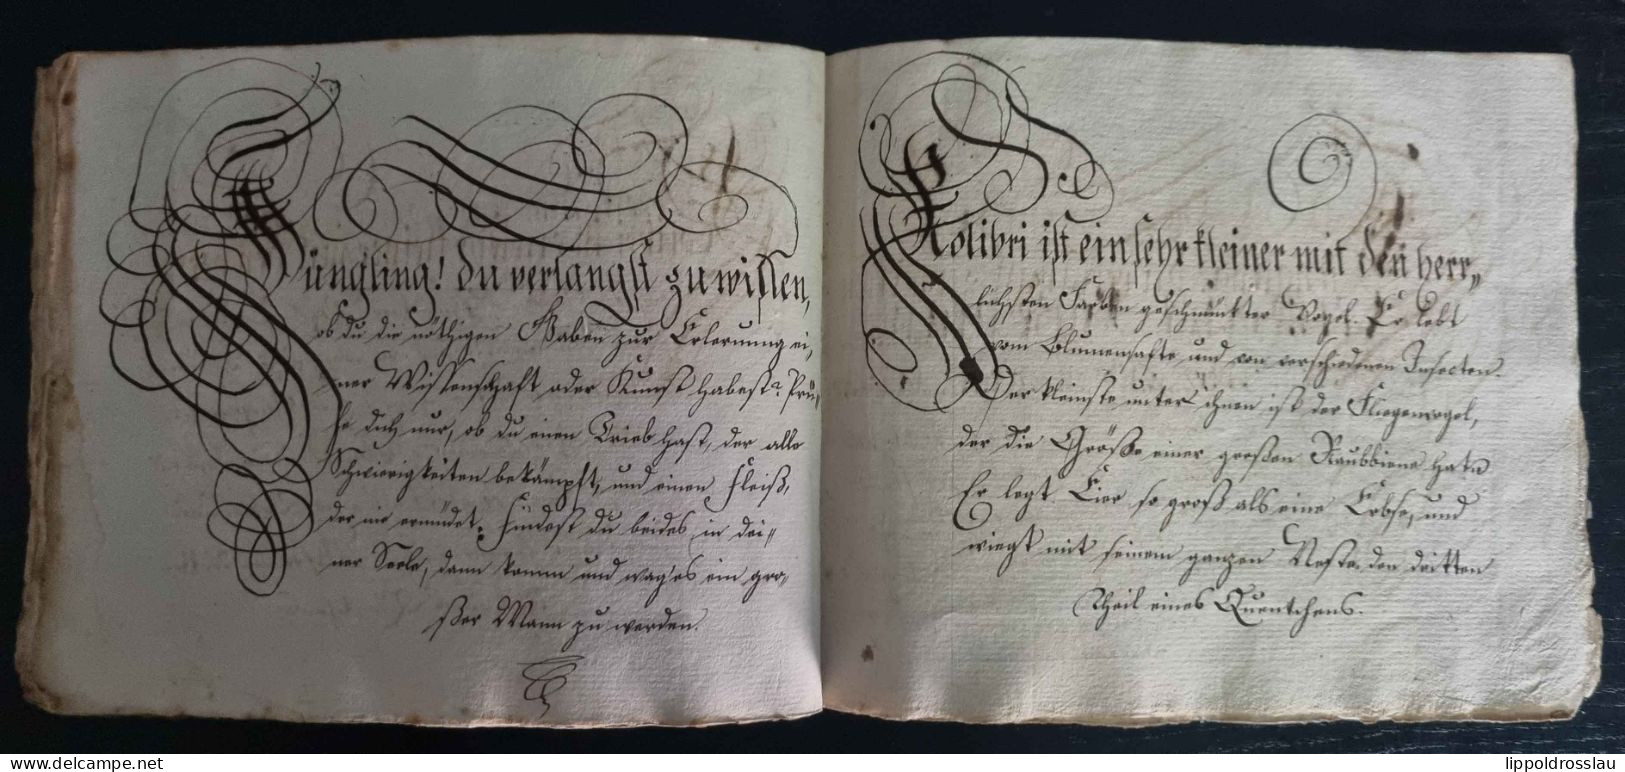 Jüngling! du verlangst zu wissen,
ob du die nöthigen Gaben zur Erlernung ei„
ner Wissenschaft oder Kunst habest? Prü„
fe dich nur, ob du einen Trieb hast, der alle
Schwierigkeiten bekämpft, und einen Fleiß,
der nie ermüdet. Findest du beides in dei„
ner Seele, dann komm und wag'es ein gro„
ßer Mann zu werden.
Kolibri ist ein sehr kleiner mit den herr„
lichsten Farben geschmückter Vogel. Er lebt
vom Blumensafte und von verschiedenen Insecten.
Der kleinste unter ihnen ist der Fliegenvogel,
der die Größe einer großen Raubbiene hat.
Er legt Eier so groß als eine Erbse, und
wiegt mit seinem ganzen Neste den dritten
Theil eines Quentchens.
www.delcampe.net
lippoldrosslau